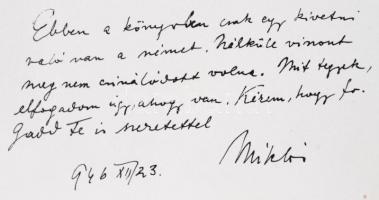 Ebben a könyvben csak egy kivetni
való van a német. Nélküle viszont
meg nem csinálódott volna. Mit tegyek,
elfogadom úgy, ahogy van. Kérem, hogy fo-
gadd Te is szeretettel
Miklós
946 XII/23.